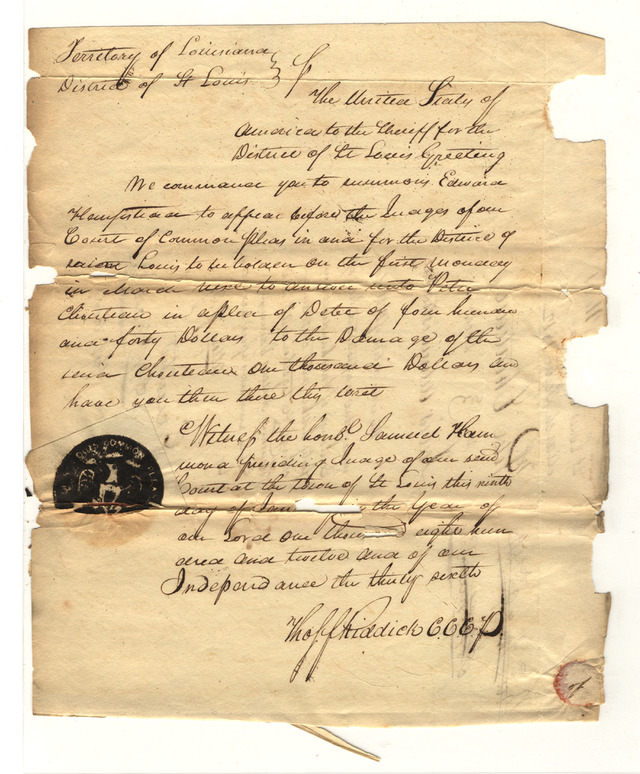 Territory of Louisiana
District of St Louis } S
The United States of
America to the Sheriff for the
District of St Louis Greeting
We command you to summons Edward
Hempstead to appear before the Judges of our
Court of Common pleas in and for the District of
Saint Louis to be holden on the first Monday
in March next to answer unto Peter
Chouteau in a plea of Debt of four hundred
and forty Dollars to the Damage of the
said Chouteau One thousand Dollars and
have you then there this writ
Witness the honbl. Samuel Ham
mond presiding Judge of our said
Court at the Town of St Louis this ninth
day of Jan the Year of
our Lord one thousand eight hun
dred and twelve and of our
Independance the thirty sixth
Thos. F Riddick C.C.C.P.
LOUIS COMMON PLEAS
of